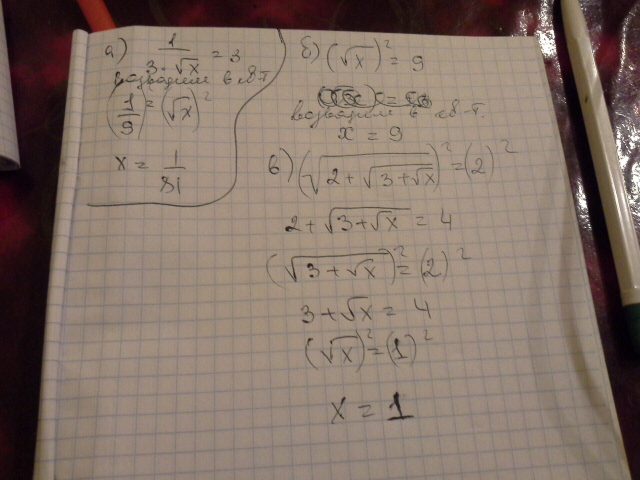 а) 1 / 3·√x = 3
возводим в кв-т
(1/9)² = (√x)²
x = 1/81
б) (√x)² = 9
возводим в кв-т.
x = 9
в) (√(2+√(3+√x)))² = (2)²
2+√(3+√x) = 4
(√(3+√x))² = (2)²
3+√x = 4
(√x)² = (1)²
x = 1